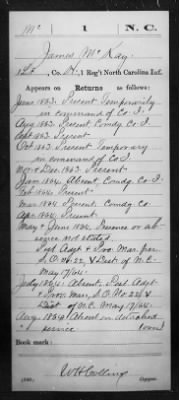 Mc 1 N. C.
James McKay
Lt., Co. H, 1 Reg't North Carolina Inf.
Appears on Returns as follows:
June 1863. Present Temporarily
in command of Co. I
Aug 1863. Present Comdg Co. I
Sept 1863 Present
Oct 1863. Present Temporary
in command of Co. I.
Nov & Dec. 1863 Present
Jany 1864. Absent, Comdg. Co. I
Feb. 1864. Present
Mar 1864 Present Comdg Co.
Apr. 1864. Present
May & June 1864. Presence or ab-
sence not stated.
Post Adjt & Pro. Mar. per
S.O. 22 & Dist of N.C.
May 17/64.
July 1864. Absent. Post Adjt
& Prov. Mar. S.O. No 22 &
Dist of N.C. May 17/64.
Aug. 1864 Absent on detached
service
Book mark:
Copyist.